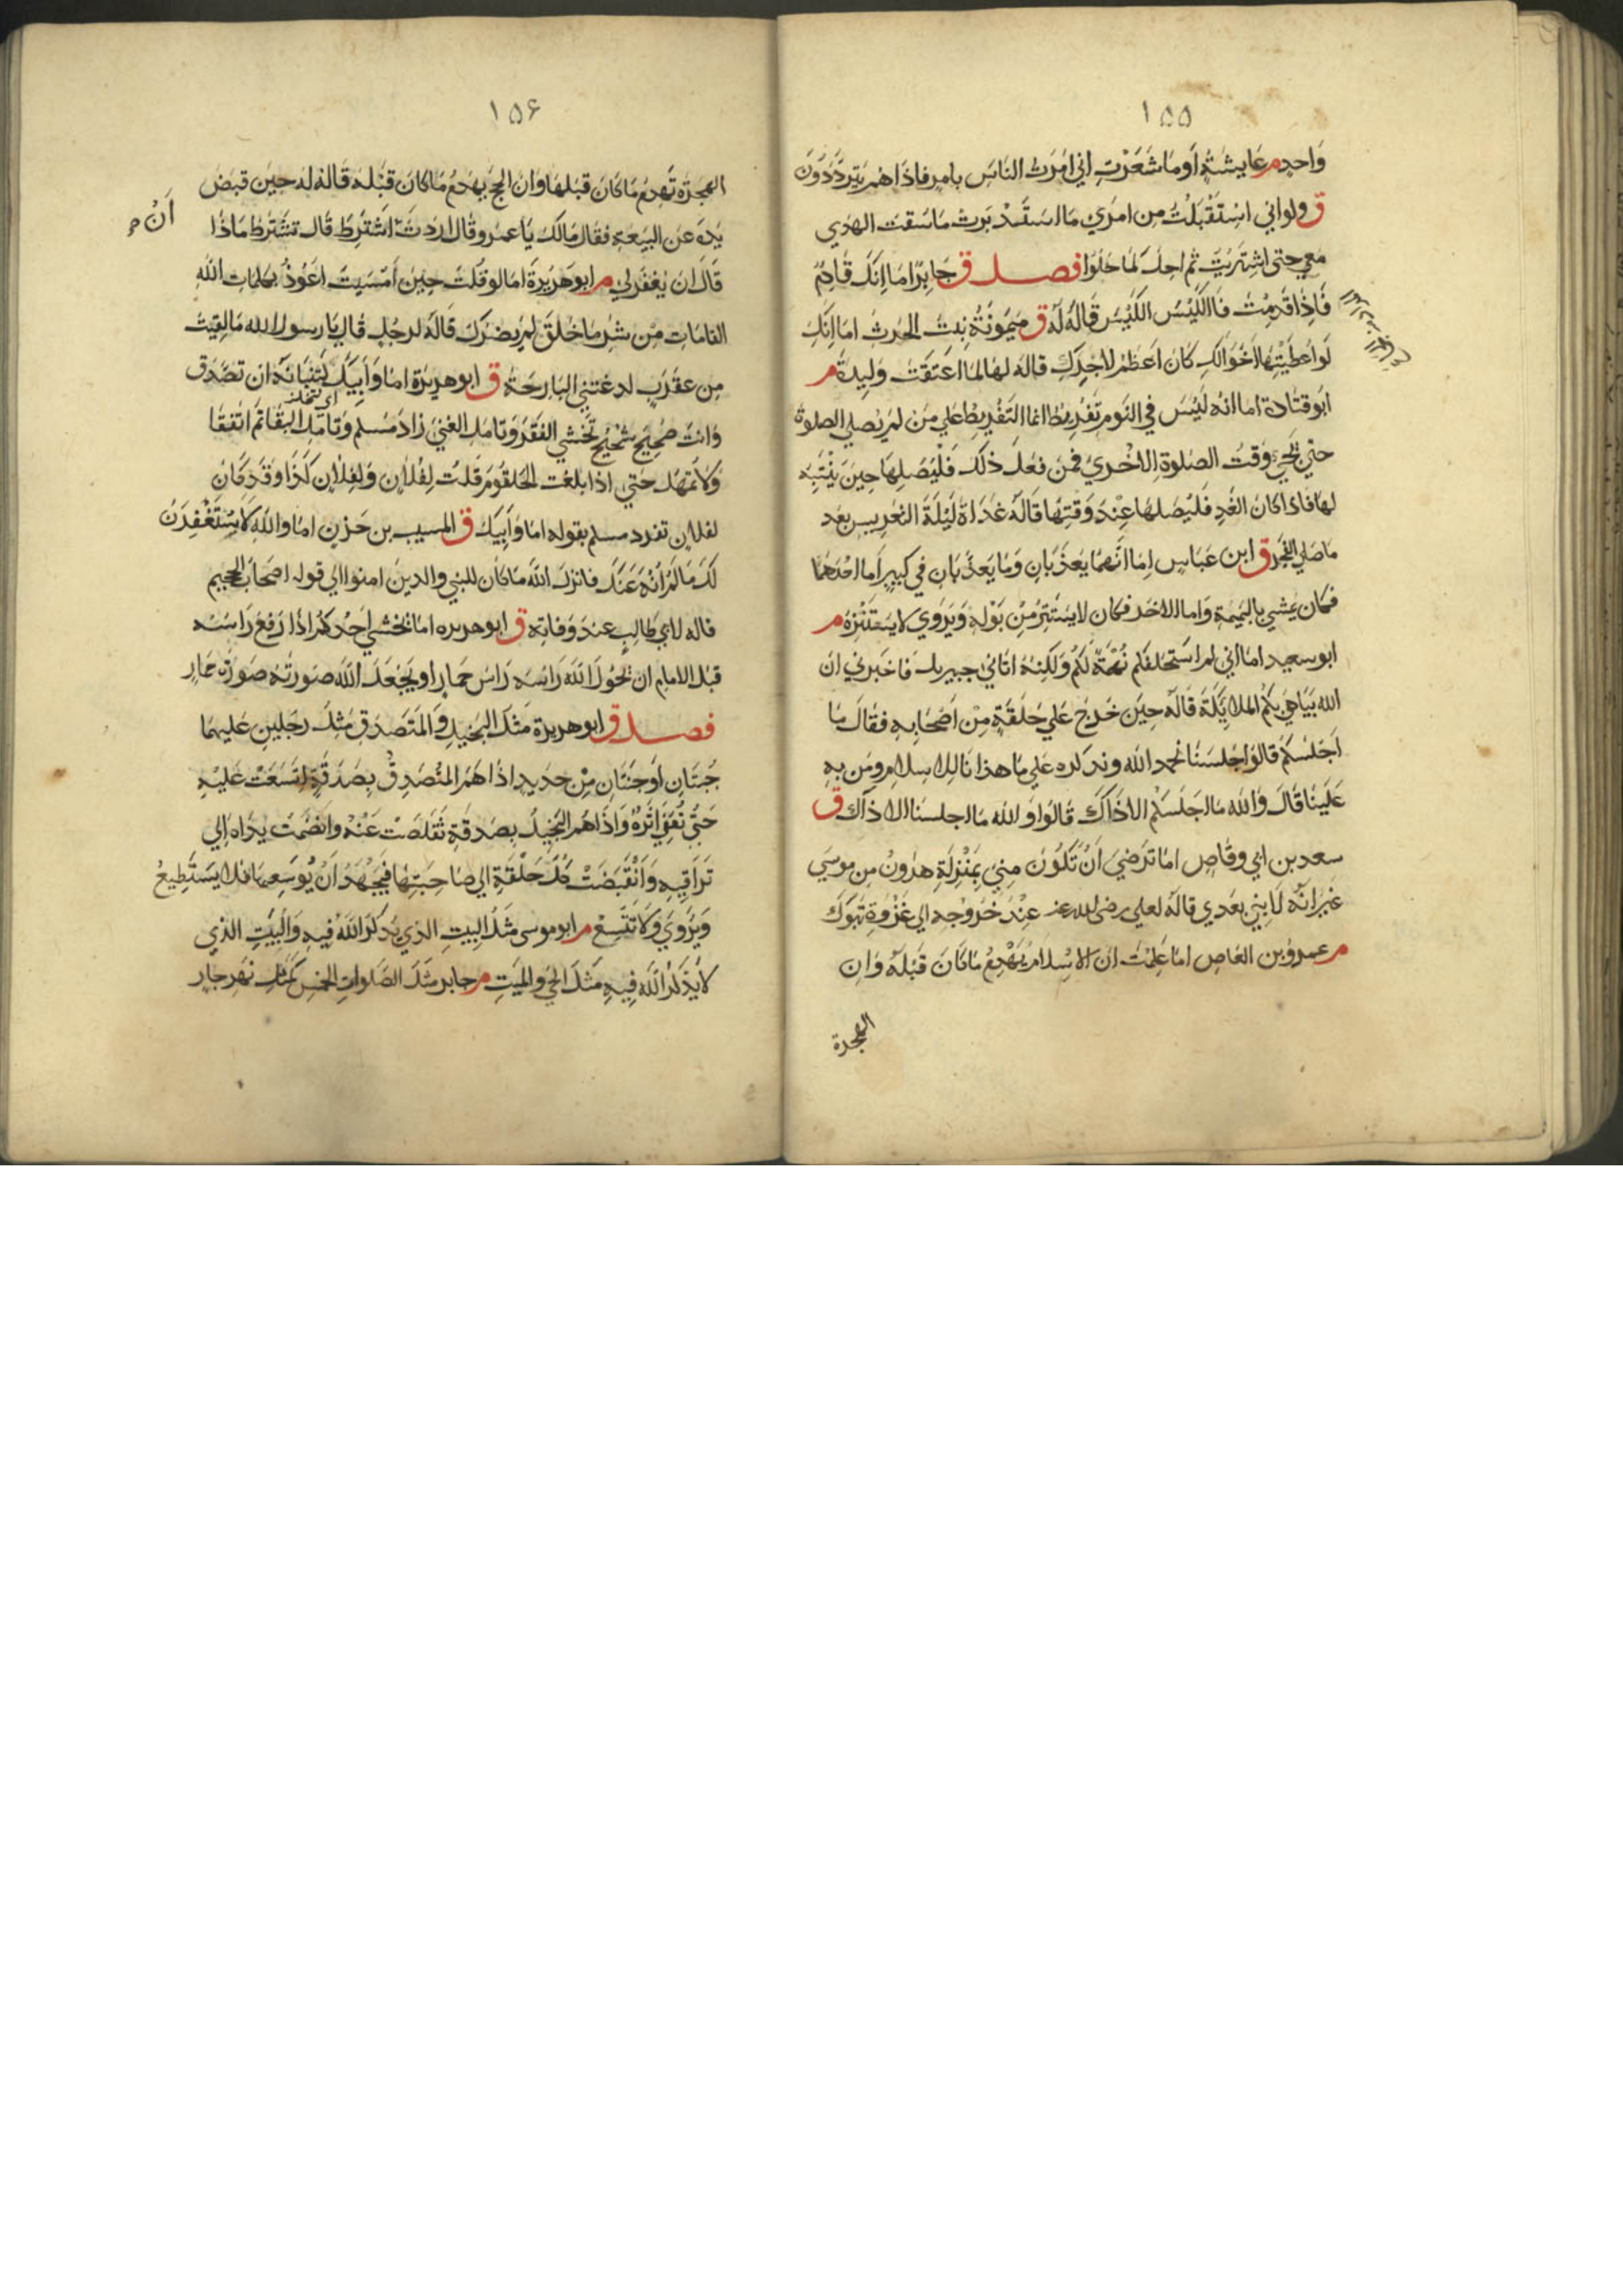 ١٥٥
واحدٍ م عايشة أوما شعرت اني امرت الناس بامر فاذا هم يترددون
ق ولواني استقبلت من امري ما استدبرت ما سقت الهدي
معي حتى اشتريت ثم احل كما حلوا فصل ق جابر اما انك قادم
فاذا قدمت فالكيس الكيس قاله له ق ميمونة بنت الحرث اما انك
لو اعطيتها اخوالك كان اعظم لاجرك قاله لها لما اعتقت وليدة م
ابو قتادة اما انه ليس في النوم تفريط انما التفريط علي من لم يصلي الصلوة
حتي تجي وقت الصلوة الاخري فمن فعل ذلك فليصلها حين ينتبه
لها فاذا كان الغد فليصلها عند وقتها قاله غداة ليلة التعريس بعد
ما صلي الفجر ق ابن عباس اما انهما يعذبان وما يعذبان في كبير اما احدهما
فكان يمشي بالنميمة واما الاخر فكان لا يستتر من بوله ويروي لا يستنزه م
ابو سعيد اما اني لم استحلفكم تهمة لكم ولكنه اتاني جبريل فاخبرني ان
الله يباهي بكم الملايكة قاله حين خرج علي حلقة من اصحابه فقال ما
اجلسكم قالوا جلسنا نحمد الله ونذكره علي ما هدانا للاسلام ومن به
علينا قال والله ما اجلسكم الا ذاك قالوا والله ما اجلسنا الا ذاك ق
سعد بن ابي وقاص اما ترضي أن تكون مني بمنزلة هرون من موسي
غير انه لا نبي بعدي قاله لعلي رضي الله عنه عند خروجه الي غزوة تبوك
م عمرو بن العاص اما علمت ان الاسلام يهدم ما كان قبله وان
الهجرة
١٥۶
الهجرة تهدم ما كان قبلها وان الحج يهدم ما كان قبله قاله له حين قبض
يده عن البيعة فقال مالك يا عمرو قال اردت اشترط قال تشترط ماذا
أن
قال ان يغفر لي م ابو هريرة اما لو قلت حين أمسيت اعوذ بكلمات الله
التامات من شر ما خلق لم يضرك قاله لرجل قال يا رسول الله ما لقيت
من عقرب لدغتني البارحة ق ابو هريرة اما وأبيك لتنبانه ان تصدق
وانت صحيح شحيح تخشي الفقر وتامل الغني زاد مسلم وتامل البقا ثم اتفقا
ولا تمهل حتي اذا بلغت الحلقوم قلت لفلان ولفلان كذا وقد كان
لفلان تفرد مسلم بقوله اما وأبيك ق المسيب بن حزن اما والله لاستغفرن
لك ما لم انه عنك فانزل الله ما كان للنبي والذين امنوا الي قوله اصحاب الجحيم
قاله لابي طالب عند وفاته ق ابو هريره اما يخشي احدكم اذا رفع راسه
قبل الامام ان يحول الله راسه راس حمار او يجعل الله صورته صورة حمار
فصل ق ابو هريرة مثل البخيل والمتصدق مثل رجلين عليهما
جبتان او جنتان من حديد اذا هم المتصدق بصدقة اتسعت عليه
حتي تعفي اثره واذا هم البخيل بصدقة تقلصت عنه وانضمت يداه الي
تراقيه وانقبضت كل حلقة الي صاحبتها فيجهد أن يوسعها فلا يستطيع
ويروي ولا تتسع م ابو موسى مثل البيت الذي يذكر الله فيه والبيت الذي
لا يذكر الله فيه مثل الحي والميت م جابر مثل الصلوات الخمس كمثل نهر جار